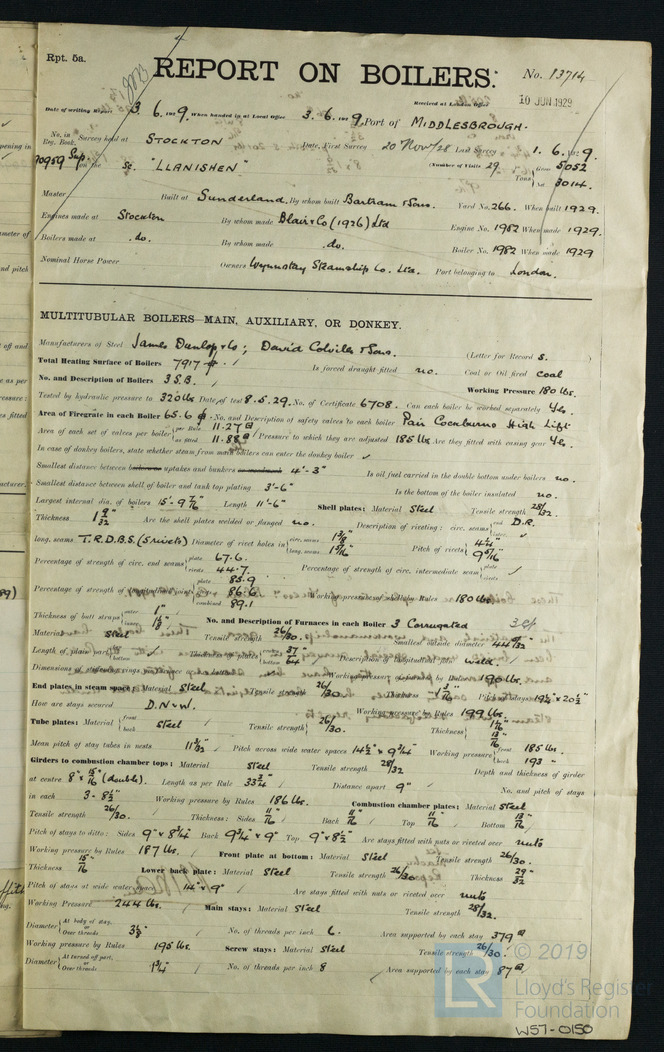 Rpt. 5a.
REPORT ON BOILERS.
No. 13714
Received at London Office 10 JUN 1929
Date of writing Report 3. 6. 1929. When handed in at Local Office 3. 6. 1929. Port of MIDDLESBROUGH.
No. in Reg. Book. Survey held at STOCKTON Date, First Survey 20 Nov/28 Last Survey 1. 6. 1929.
90959 Sup. on the Sc. "LLANISHEN" (Number of Visits 29. Tons Gross 5052 Net 3014.
Master Built at Sunderland. By whom built Bartram & Sons. Yard No. 266. When built 1929.
Engines made at Stockton By whom made Blair & Co (1926) Ltd Engine No. 1982 When made 1929.
Boilers made at do. By whom made do. Boiler No. 1982 When made 1929
Nominal Horse Power Owners Wynnstay Steamship Co. Ltd. Port belonging to London.
MULTITUBULAR BOILERS MAIN, AUXILIARY, OR DONKEY.
Manufacturers of Steel James Dunlop & Co; David Colville & Sons. (Letter for Record S. )
Total Heating Surface of Boilers 7917 Is forced draught fitted no. Coal or Oil fired coal
No. and Description of Boilers 3 S.B. Working Pressure 180 lbs.
Tested by hydraulic pressure to 320 lbs Date of test 8.5.29. No. of Certificate 6708. Can each boiler be worked separately Yes.
Area of Firegrate in each Boiler 65.6 No. and Description of safety valves to each boiler Pair Cockburns High Lift
Area of each set of valves per boiler per Rule 11.27 as fitted 11.88 Pressure to which they are adjusted 185 lbs Are they fitted with easing gear Yes.
In case of donkey boilers, state whether steam from main boilers can enter the donkey boiler ✓
Smallest distance between boilers or uptakes and bunkers 4'-3" Is oil fuel carried in the double bottom under boilers no.
Smallest distance between shell of boiler and tank top plating 3'-6" Is the bottom of the boiler insulated no.
Largest internal dia. of boilers 15'-9 7/16" Length 11'-6" Shell plates: Material Steel Tensile strength 28/32.
Thickness 1 9/32" Are the shell plates welded or flanged no. Description of riveting: circ. seams end D.R. inter. ✓
long. seams T.R.D.B.S. (5 rivets) Diameter of rivet holes in circ. seams 1 3/8" long. seams 1 5/16" Pitch of rivets 4 1/4" 9 5/16"
Percentage of strength of circ. end seams plate 67.6. rivets 44.7. Percentage of strength of circ. intermediate seam plate rivets ✓
Percentage of strength of longitudinal joint plate 85.9 rivets 86.6 combined 89.1 Working pressure of shell by Rules 180 lbs.
Thickness of butt straps outer 1" inner 1 1/8" No. and Description of Furnaces in each Boiler 3 Corrugated
Material Steel Tensile strength 26/30. Smallest outside diameter
Length of plain part top bottom Thickness of plates crown bottom 37/64" Description of longitudinal joint weld
Dimensions of stiffening rings Working pressure of furnace by Rules 190 lbs.
End plates in steam space: Material Steel Tensile strength 26/30 Thickness 1 3/16" Pitch of stays 19 1/4" x 20 1/2"
How are stays secured D.N & W. Working pressure by Rules 199 lbs.
Tube plates: Material front back Steel Tensile strength 26/30. Thickness 13/16"
Mean pitch of stay tubes in nests 11 3/32" Pitch across wide water spaces 14 1/2" x 9 3/4" Working pressure front 185 lbs. back 193 "
Girders to combustion chamber tops: Material Steel Tensile strength 28/32 Depth and thickness of girder
at centre 8" x 15/16" (double). Length as per Rule 33 3/4" Distance apart 9" No. and pitch of stays
in each 3- 8 1/2" Working pressure by Rules 186 lbs. Combustion chamber plates: Material Steel
Tensile strength 26/30. Thickness: Sides 11/16" Back 11/16" Top 11/16" Bottom 13/16"
Pitch of stays to ditto: Sides 9" x 8 3/4" Back 9 3/4" x 9" Top 9" x 8 1/2" Are stays fitted with nuts or riveted over nuts
Working pressure by Rules 187 lbs. Front plate at bottom: Material Steel Tensile strength 26/30.
Thickness 15/16" Lower back plate: Material Steel Tensile strength 26/30 Thickness 29/32"
Pitch of stays at wide water space 14" x 9" Are stays fitted with nuts or riveted over nuts
Working Pressure 244 lbs. Main stays: Material Steel Tensile strength 28/32.
Diameter At body of stay, or Over threads 3 1/8" No. of threads per inch 6. Area supported by each stay 379
Working pressure by Rules 195 lbs. Screw stays: Material Steel Tensile strength 26/30.
Diameter At turned off part, or Over threads 1 3/4" No. of threads per inch 8 Area supported by each stay 87
© 2019
Lloyd's Register
Foundation
W57-0150